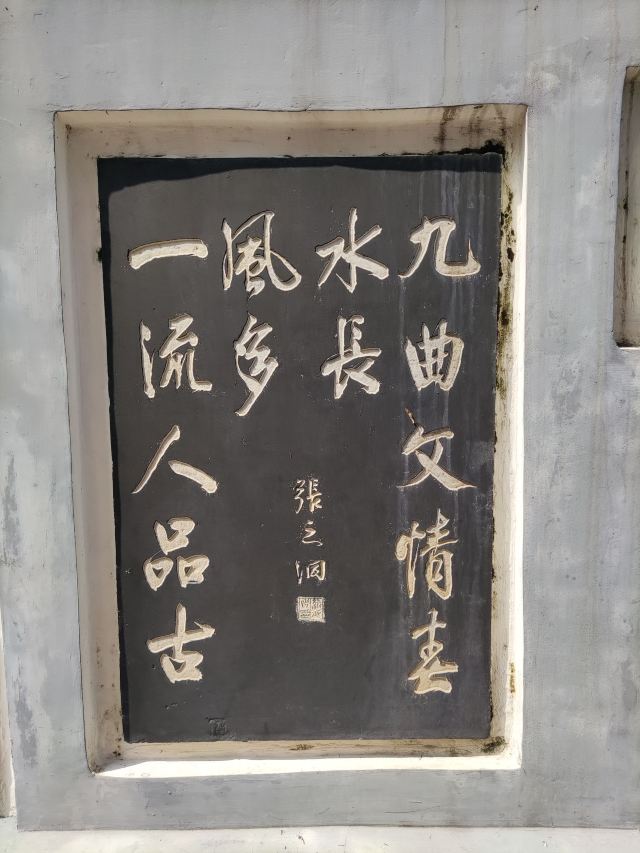 九曲文情春
水長
一流人品古
風多
張之洞